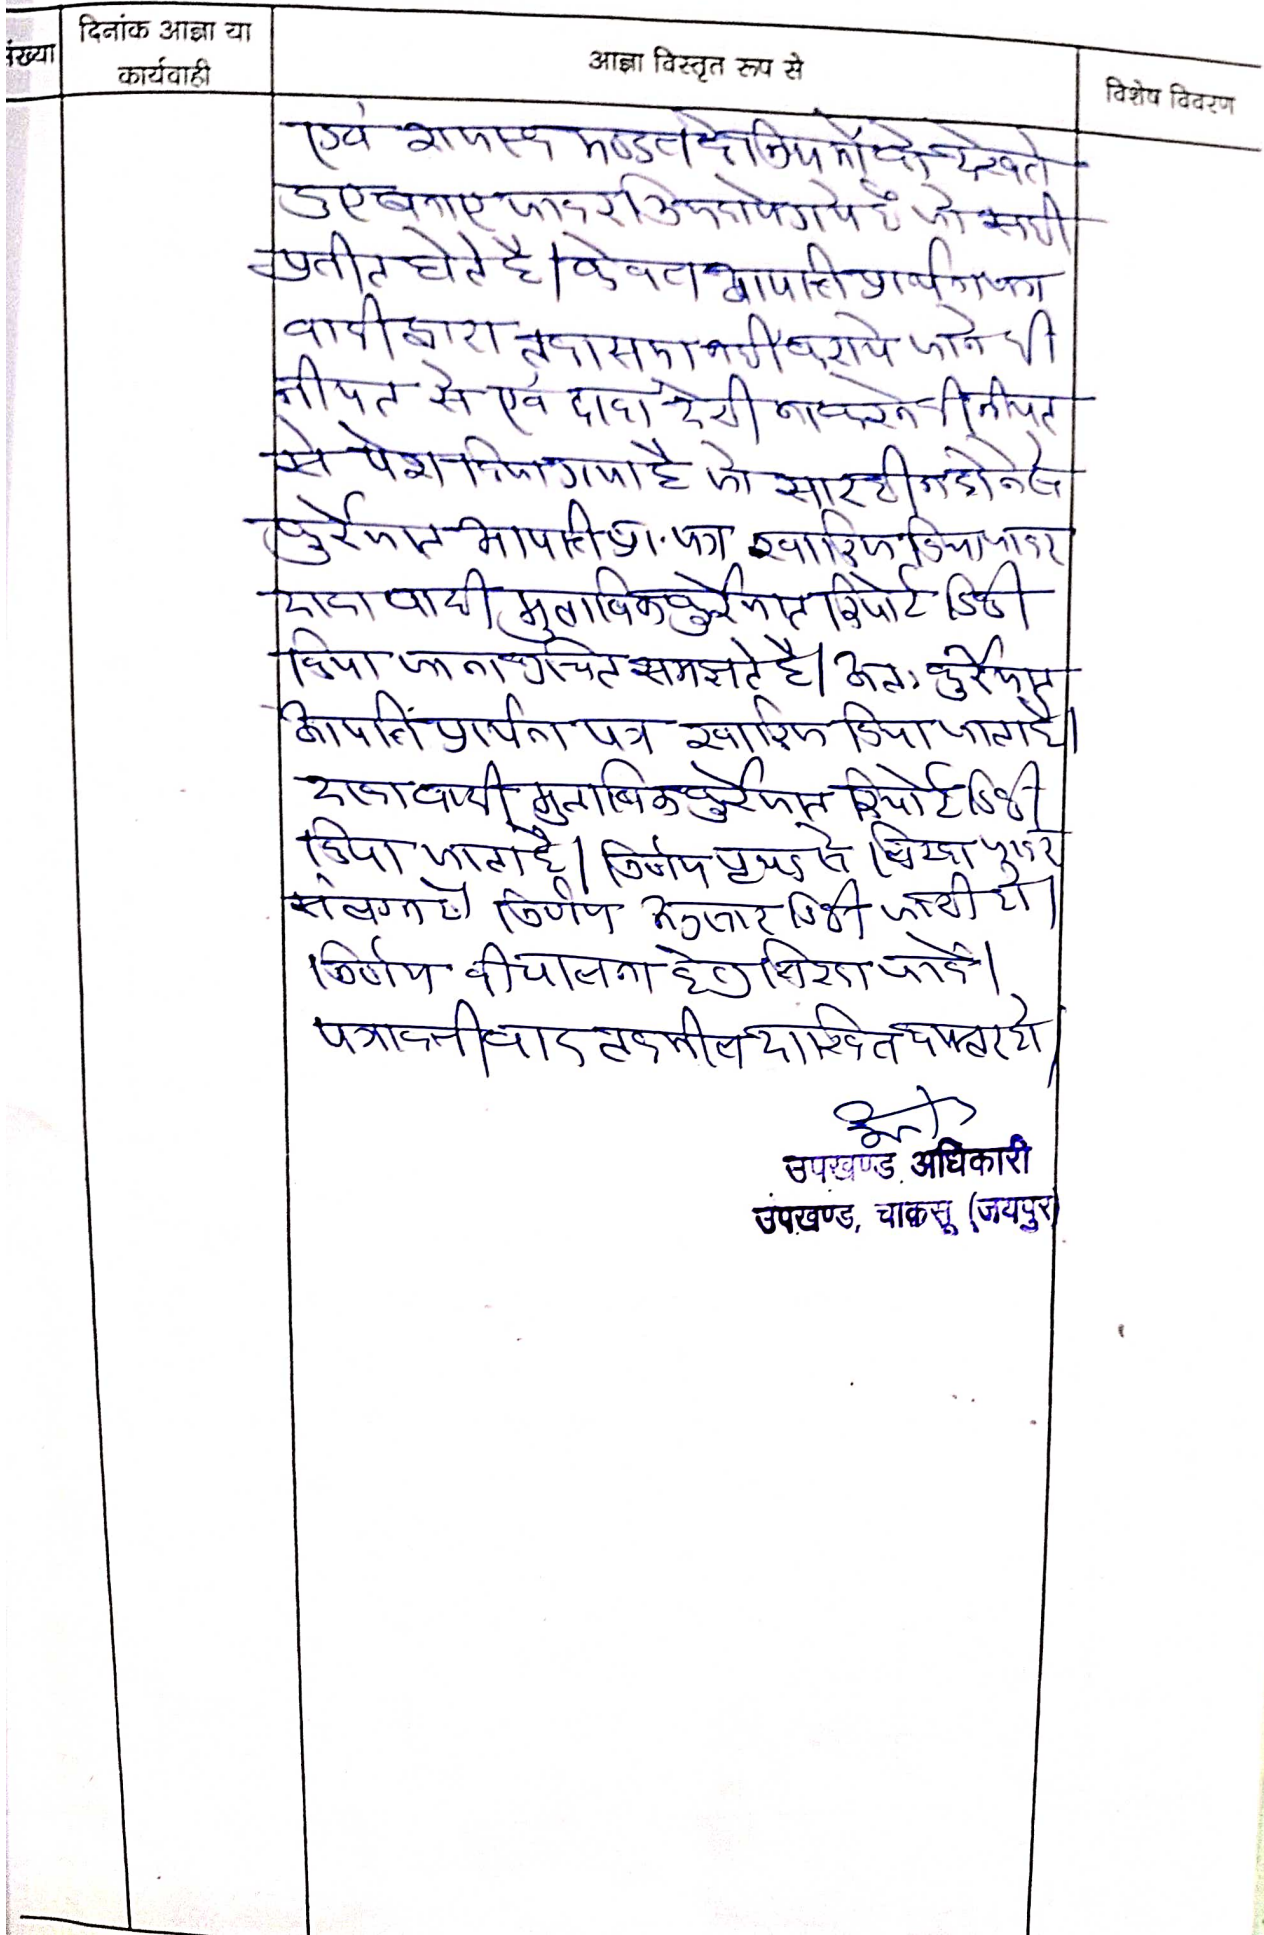 संख्या
दिनांक आज्ञा या
कार्यवाही
आज्ञा विस्तृत रूप से
विशेष विवरण
एवं राजस्व मण्डल के नियमों को देखते
हुए बनाए जाकर भिजवाये गये है जो सही
प्रतीत होते है। केवल आपत्ति प्रार्थना पत्र
वादी द्वारा तकासमा नहीं कराये जाने की
नीयत से एवं दावा देरी करने की नीयत
से पेश किया गया है जो सारहीन होने से
कुर्रेजात आपत्ति प्रा. पत्र खारिज किया जाकर
दावा वादी मुताबिक कुर्रेजात रिपोर्ट डिक्री
किया जाना उचित समझते है। अतः कुर्रेजात
आपत्ति प्रार्थना पत्र खारिज किया जाता है।
दावा वादी मुताबिक कुर्रेजात रिपोर्ट डिक्री
किया जाता है। निर्णय पृथक से लिखा जाकर
संलग्न है। निर्णय अनुसार डिक्री जारी हो।
निर्णय की पालना हेतु लिखा जावे।
पत्रावली बाद तकमील दाखिल दफ्तर हो।
उपखण्ड अधिकारी
उपखण्ड, चाकसू (जयपुर)